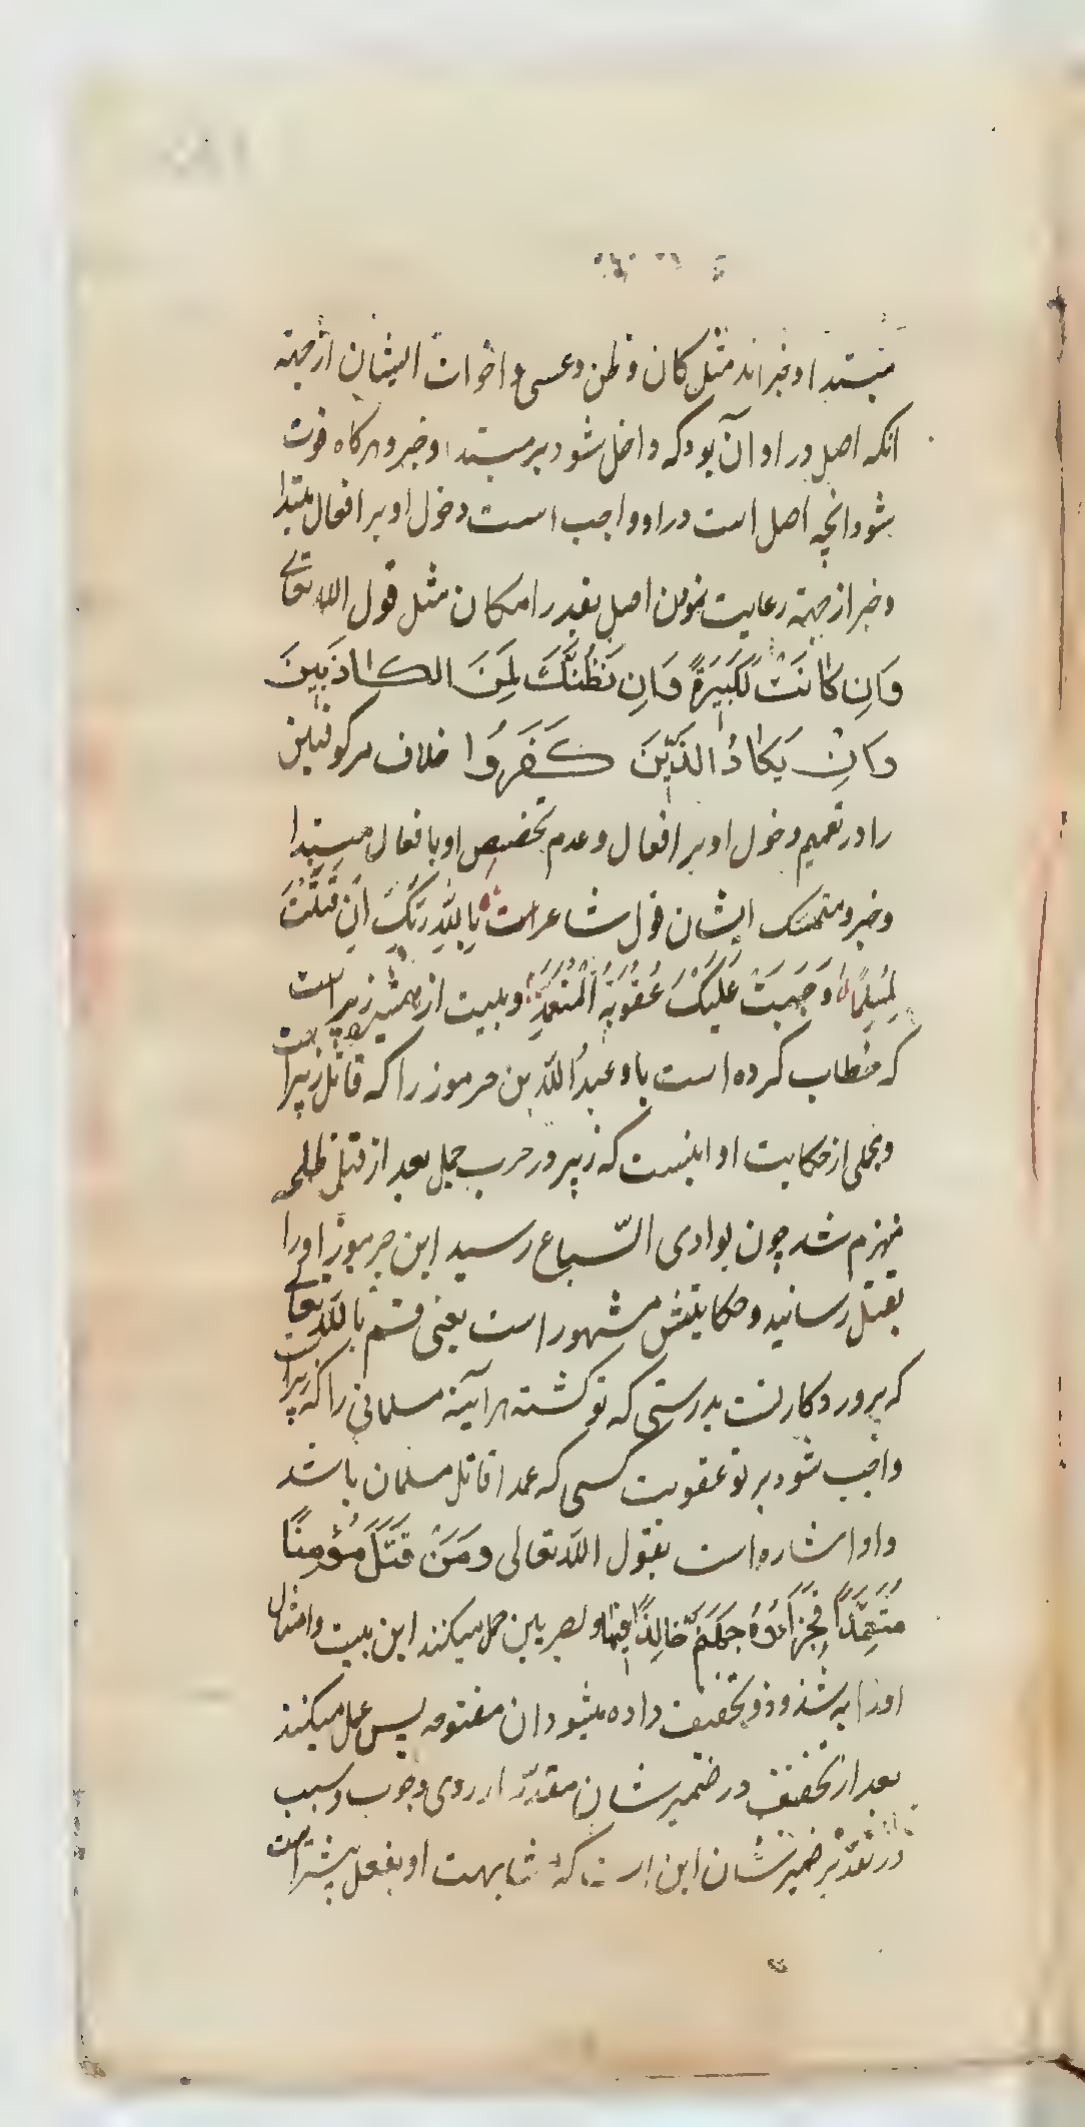 مبتدا و خبراند مثل کان و ظن و عسی و اخوات ایشان از جهته
انکه اصل در او آن بود که داخل شود بر مبتدا و خبر و هرکاه فوت
شود انچه اصل است در او واجب است دخول او بر افعال مبتدا
و خبر از جهته رعایت نمودن اصل بقدر امکان مثل قول الله تعالی
وَاِن کانَتْ لَکَبیرَةً وَاِن نَظُنُّکَ لَمِنَ الکاذِبینَ
وَاِنْ یَکادُ الَّذینَ کَفَرُوا خلاف مر کوفیین
را در تعمیم دخول او بر افعال و عدم تخصیص او بافعال مبتدا
و خبر و متمسک ایشان قول شاعر است بِاللّهِ رَبِّکَ اِن قَتَلْتَ
لَمُسْلِمًا وَجَبَتْ عَلَیْکَ عُقُوبَةُ الْمُتَعَمِّدِ و بیت از زبیر است
که خطاب کرده است باو عبدُ اللّه بن جرموز را که قاتل زبیر است
و مجملی از حکایت او اینست که زبیر در حرب جمل بعد از قتل طلحه
منهزم شد چون بوادی السّباع رسید ابن جرموز او را
بقتل رسانید و حکایتش مشهور است یعنی قسم باللّه تعالی
که پروردکار تست بدرستی که تو کشته هرآینه مسلمانی را که زبیر است
واجب شود بر تو عقوبت کسی که عمدا قاتل مسلمان باشد
و او اشاره است بقول اللّه تعالی وَمَنْ قَتَلَ مُؤْمِنًا
مُتَعَمِّدًا فَجَزاءُهُ جَهَنَّمُ خالِدًا فیها و بصریین حمل میکنند این بیت و امثال
او را به شذوذ و تخفیف داده میشود ان مفتوحه پس عمل میکند
بعد از تخفیف در ضمیر شان مقدّر از روی وجوب و سبب
در تقدیر ضمیر شان این است که مشابهت او بفعل بیشتر است